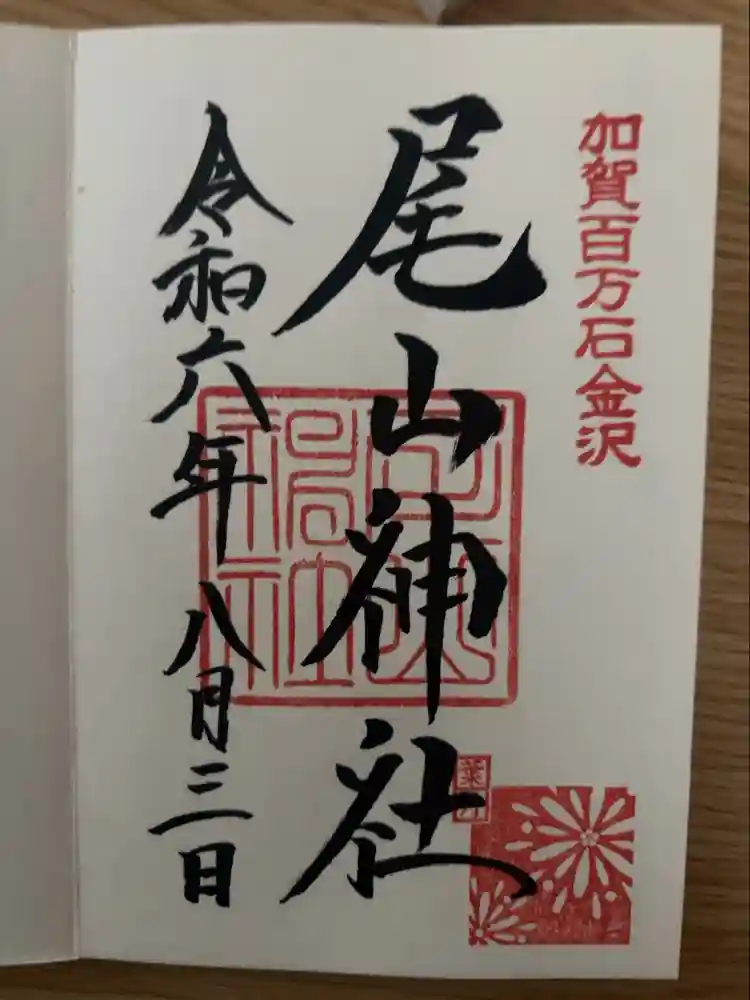 加賀百万石金沢
尾山神社
令和六年八月三日
葉月